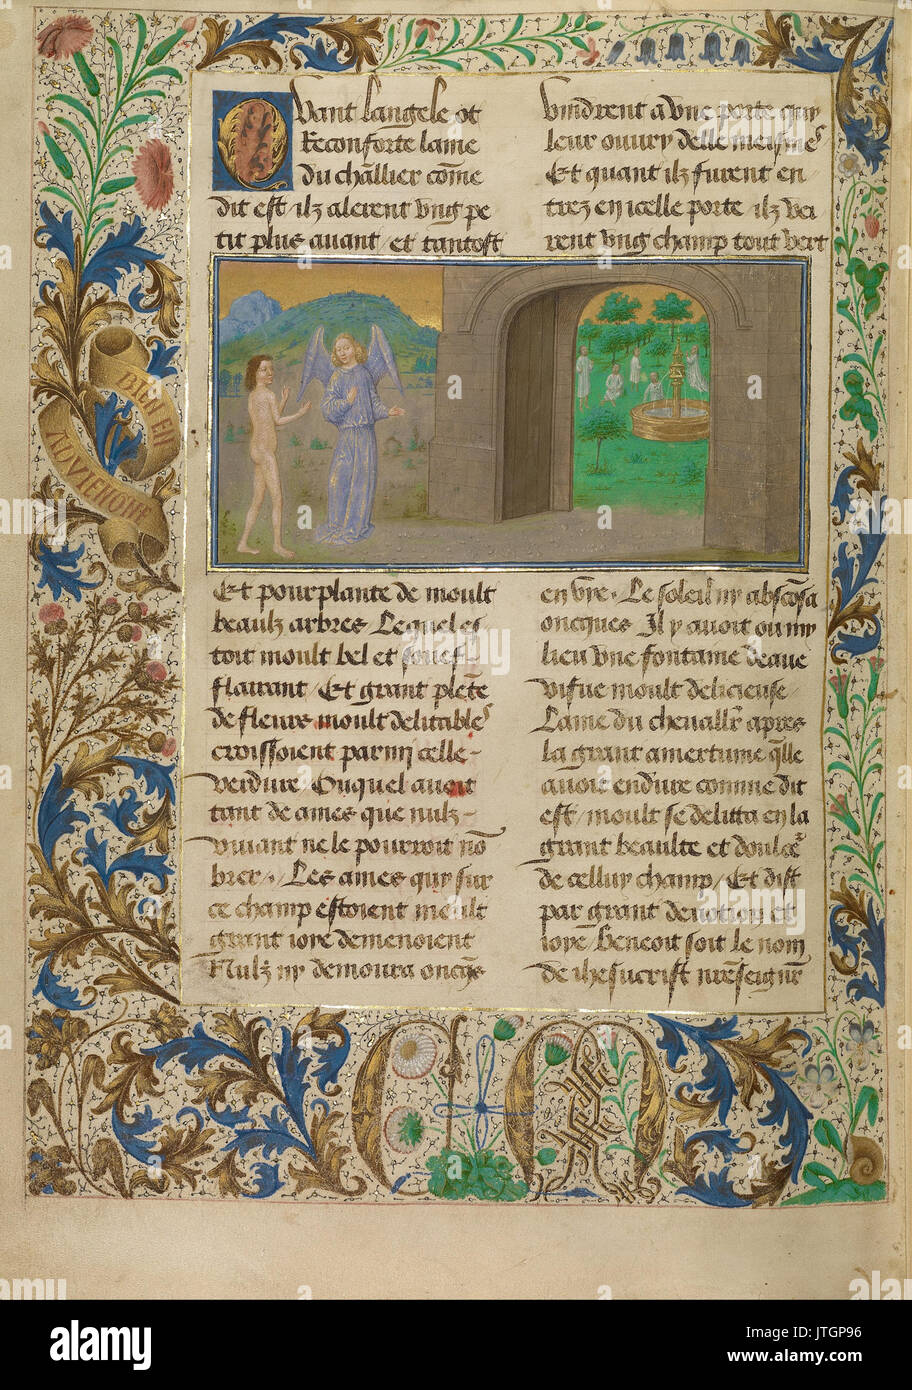 Quant langele ot
Reconforte lame
du chłlier cōme
dit est / ilz alerent vng pe
tit plus auant / et tantost
vindrent a vne porte quy
leur ouury delle meisme
Et quant ilz furent en
trez en icelle porte ilz vei
rent vng champ tout vert
Et pourplante de moult
beaulz arbres Lequel es
toit moult bel et souef
flairant / Et grant plēte
de fleurs moult delitable
croissoient parmi celle
verdure / Ouquel auoit
tant de ames que nulz
viuant ne le pourroit nō
brer / Les ames quy sur
ce champ estoient moult
grant ioye demenoient
Nulz ny demoura oncq̄s
en vye · Le soleil ny absc̄osa
oncques Il y auoit ou my
lieu vne fontaine deaue
vifue moult delicieuse /
Lame du cheuallr apres
la grant amertume q̄lle
auoit endure comme dit
est / moult se delitta en la
grant beaulte et doulc̄e
de celluy champ / Et dist
par grant deuotion et
ioye / Benoit soit le nom
de ihesucrist nr̄e seignr
BIEN EN
ADVIENGNE
C M
alamy
a
alamy stock photo
JTGP96
www.alamy.com